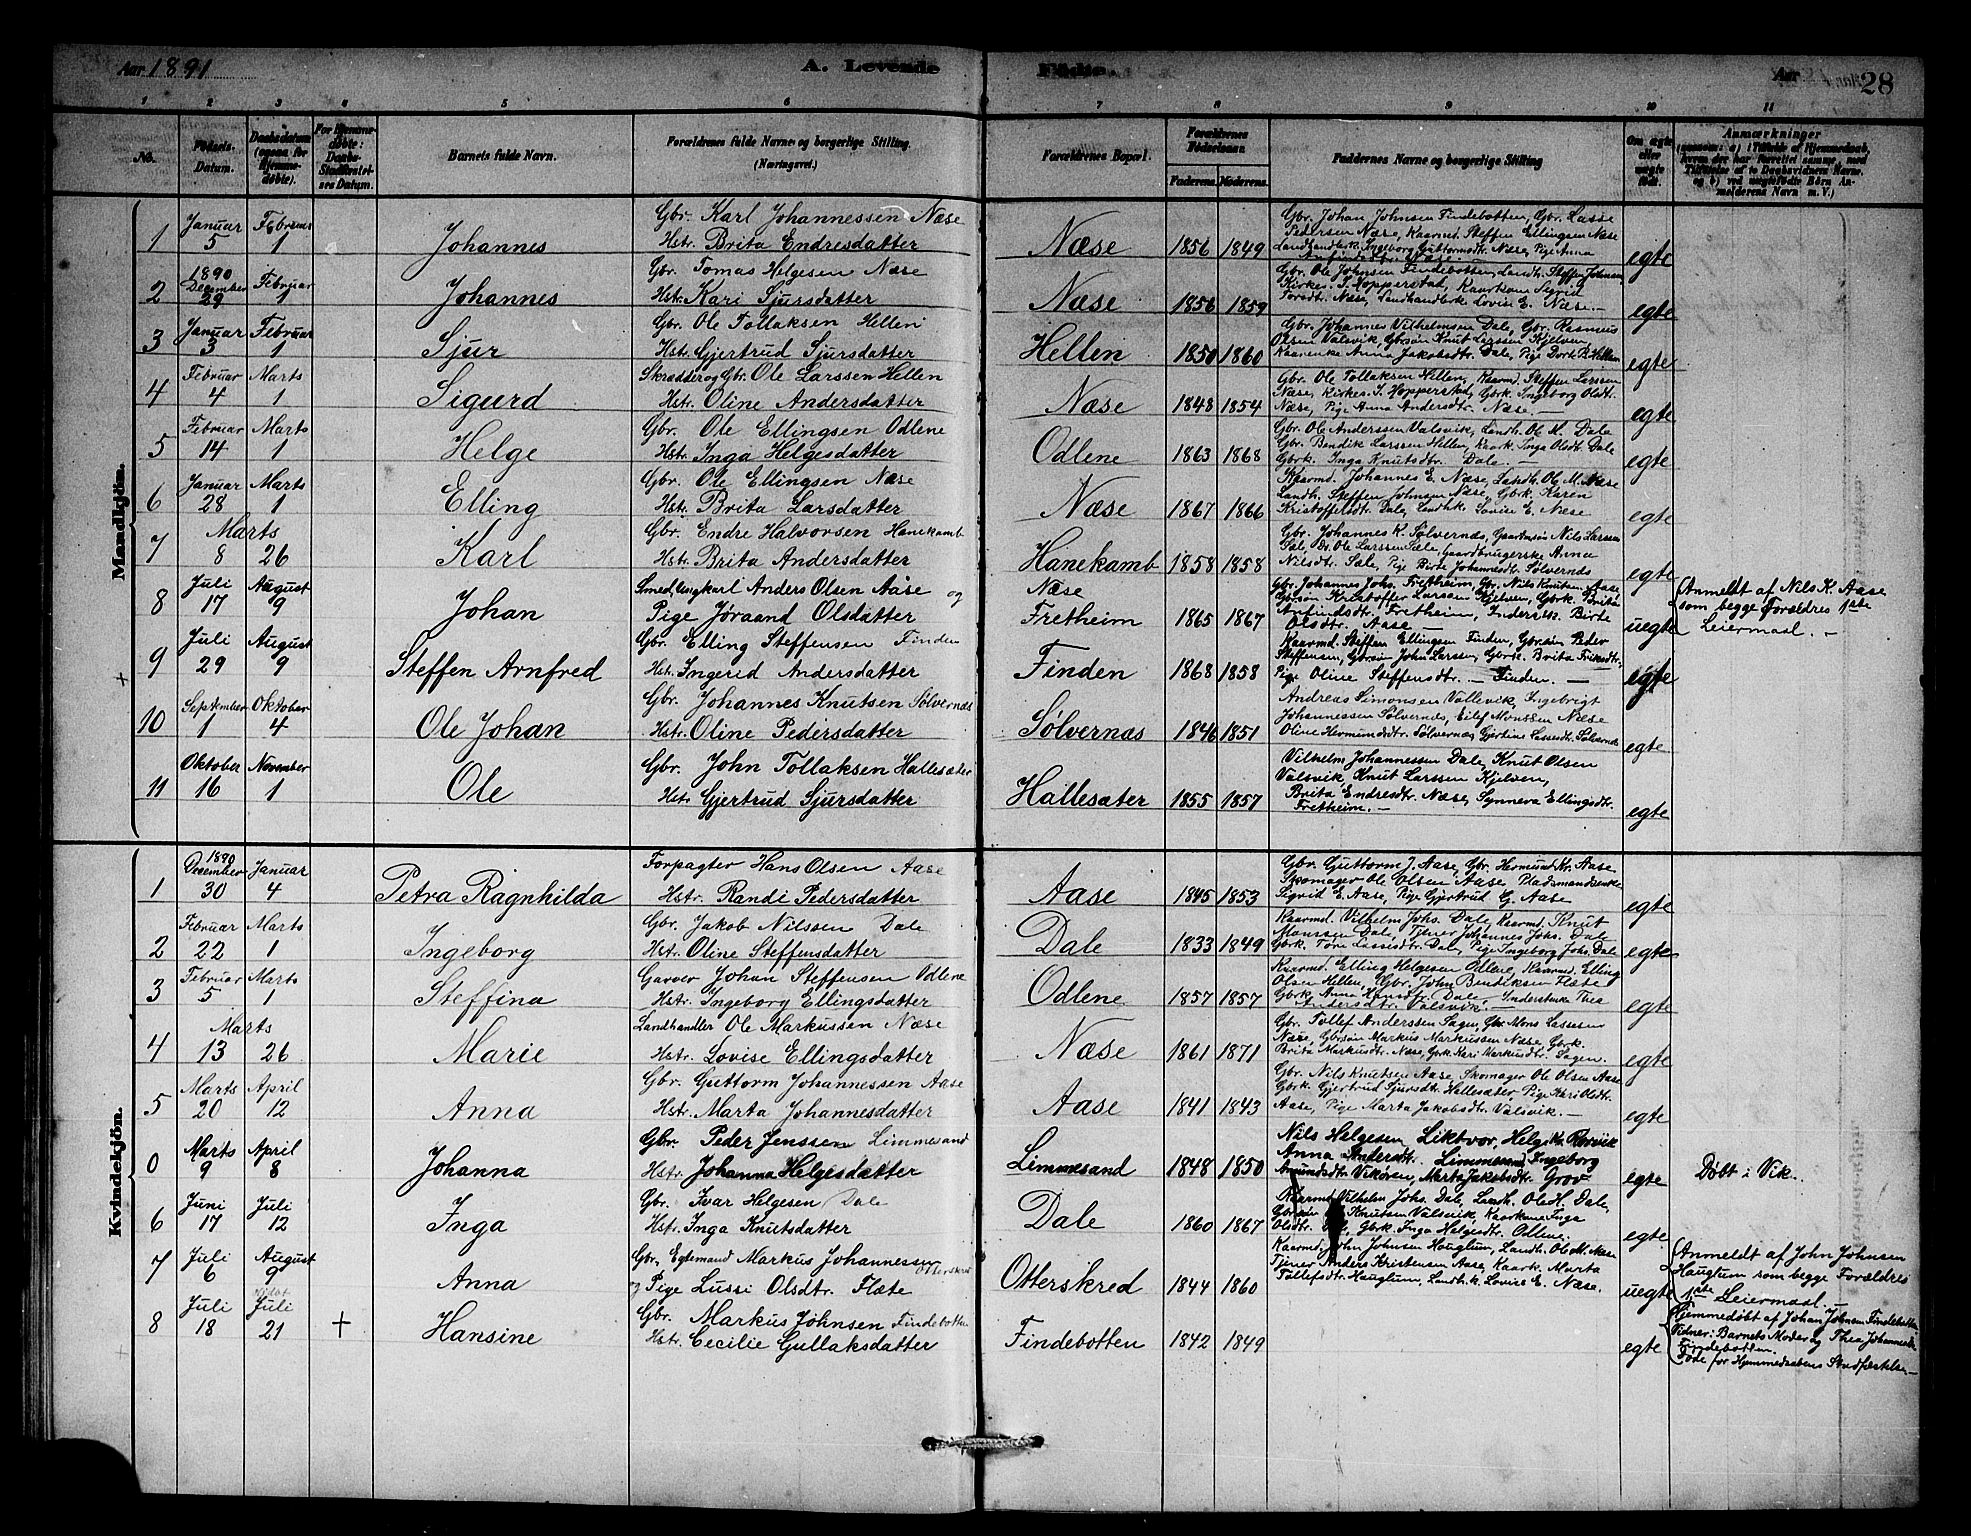 Aar 1891
A. Levende Fødte.
Aar 28
1 2 3 4 5 6 7 8 9 10 11
No.
Fødsels-Datum.
Daabsdatum (ogsaa for Hjemmedøbte).
For Hjemmedøbte: Daabs-Stadfæstelses Datum.
Barnets fulde Navn.
Forældrenes fulde Navne og borgerlige Stilling. (Næringsvei.)
Forældrenes Bopæl.
Forældrenes Fødselsaar
Faderens. Moderens.
Faddernes Navne og borgerlige Stilling
Om ægte eller uægte født.
Anmærkninger
Mandkjön.
1 Januar 5 Februar 1 Johannes Gbr. Karl Johannessen Næse
Hstr. Brita Endresdatter Næse 1856 1849 egte
Gbr. Johan Johnsen Findebotten, Gbr. Lasse
Pedersen Næse, Kaarmd. Steffen Ellingsen Næse
Landhandlerk. Ingeborg Guttormsdtr. Næse, Pige Anna
2 1890 December 29 Februar 1 Johannes Gbr. Tomas Helgesen Næse
Hstr. Kari Sjursdatter Næse 1856 1859 egte
Gbr. Ole Johnsen Findebotten, Landh. Steffen Johnsen
Kirkes. I. Hopperstad, Kaarkone Sigrid
Torsdtr. Næse, Landhandlerk. Lovise E. Næse. —
3 Januar 3 Februar 1 Sjur Gbr. Ole Tollaksen Hellen
Hstr. Gjertrud Sjursdatter Hellen 1850 1860 egte
Gbr. Johannes Vilhelmsen Dale, Gbr. Rasmus
Olsen Valsvik, Gbrsøn Knut Larssen Kjelven,
Kaarenke Anna Jakobsdtr. Dale, Pige Dorte P. Hellen
4 Februar 4 Marts 1 Sigurd Skrædder og Gbr. Ole Larssen Hellen
Hstr. Oline Andersdatter Næse 1848 1854 egte
Gbr. Ole Tollaksen Hellen, Kaarmd. Steffen Larssen
Næse, Kirkes. I. Hopperstad, Gbrk. Ingeborg Olsdtr.
Næse, Pige Anna Andersdtr. Næse. —
5 Februar 14 Marts 1 Helge Gbr. Ole Ellingsen Odlene
Hstr. Inga Helgesdatter Odlene 1863 1868 egte
Gbr. Ole Anderssen Valsvik, Landh. Ole M. Dale
Gbr. Bendik Larssen Hellen, Kaark. Inga Olsdtr. Dale
Gbrk. Inga Knutsdtr. Dale. —
6 Januar 28 Marts 1 Elling Gbr. Ole Ellingsen Næse
Hstr. Brita Larsdatter Næse 1867 1866 egte
Kaarmd. Johannes E. Næse, Landh. Ole M. Næse
Landh. Steffen Johnsen Næse, Gbrk. Karen
Kristoffelsdtr. Dale, Landhk. Lovise E. Næse
7 Marts 8 26 Karl Gbr. Endre Halvorsen Hanekamb
Hstr. Brita Andersdatter Hanekamb 1858 1858 egte
Gbr. Johannes K. Sølvernes, Gaardmand Nils Larssen
Sæle, Do. Ole Larssen Sæle, Gaardbrugerske Anna
Nilsdtr. Sæle, Pige Birte Johannesdtr. Sølvernes
8 Juli 17 August 9 Johan Smed, Ungkarl Anders Olsen Næse og
Pige Jøraand Olsdatter Næse Fretheim 1865 1867 uegte
Gbr. Johannes Johs. Fretheim, Gbr. Nils Knutsen Aase,
Gbrsøn Kristoffer Larssen Kjelsen, Gbrk. Brita
Anfindsdtr. Fretheim, Inderstk. Birte
Olsdtr. Aase —
Anmeldt af Nils K. Aase
som begge Forældres 1ste
Leiermaal. —
9 Juli 29 August 9 Steffen Arnfred Gbr. Elling Steffensen Finden
Hstr. Ingerid Andersdatter Finden 1868 1858 egte
Kaarmd. Steffen Ellingsen Finden, Gbrsøn Peder
Steffensen, Gbrsøn John Larssen, Gbrk. Brita Eriksdtr.,
Pige Oline Steffensdtr. — Finden. —
10 September 1 Oktober 4 Ole Johan Gbr. Johannes Knutsen Sølvernæs
Hstr. Oline Pedersdatter Sølvernæs 1846 1851 egte
Andreas Simonsen Vallevik, Ingebrigt
Johannessen Sølvernes, Eilef Monssen Næse
Oline Hermundsdtr. Sølvernæs, Gjertine Lassesdtr. Sølvernæs
11 Oktober 16 November 1 Ole Gbr. John Tollaksen Hallesæter
Hstr. Gjertrud Sjursdatter Hallesæter 1855 1857 egte
Vilhelm Johannessen Dale, Knut Olsen
Valsvik, Knut Larssen Kjelven,
Brita Endresdtr. Næse, Synneva Ellingsdtr.
Fretheim. —
Kvindekjön.
1 1890 December 30 Januar 4 Petra Ragnhilda Forpagter Hans Olsen Aase
Hstr. Randi Pedersdatter Aase 1845 1853 egte
Gbr. Guttorm J. Aase, Gbr. Hermund Kr. Aase
Skomager Ole Olsen Aase, Pladsmandsenke
Sigrid E. Aase, Pige Gjertrud G. Aase
2 Februar 22 Marts 1 Ingeborg Gbr. Jakob Nilssen Dale
Hstr. Oline Steffensdatter Dale 1833 1849 egte
Kaarmd. Vilhelm Johs. Dale, Kaarmd. Knut
Monssen Dale, Tjener Johannes Johs. Dale
Gbrk. Tore Lassesdtr. Dale, Pige Ingeborg Johs. Dale
3 Februar 5 Marts 1 Steffina Garver Johan Steffensen Odlene
Hstr. Ingeborg Ellingsdatter Odlene 1857 1857 egte
Kaarmd. Elling Helgesen Odlene, Kaarmd. Elling
Olsen Hellen, Gbr. John Bendiksen Flæte
Gbrk. Anna Hansdtr. Dale, — Inderstenke Thea
Andersdtr. Valsvik. —
4 Marts 13 26 Marie Landhandler Ole Markussen Næse
Hstr. Lovise Ellingsdatter Næse 1861 1871 egte
Gbr. Tollef Anderssen Sagen, Gbr. Mons Lassesen
Næse, Gbrsøn Markus Markussen Næse, Gbrk.
Brita Markusdtr. Næse, Gbrk. Kari Markusdtr. Sagen.
5 Marts 20 April 12 Anna Gbr. Guttorm Johannessen Aase
Hstr. Marta Johannesdatter Aase 1841 1843 egte
Gbr. Nils Knutsen Aase, Skomager Ole Olsen Aase
Gbrk. Gjertrud Sjursdtr. Hallesæter, Pige Kari Oldtr.
Aase, Pige Marta Jakobsdtr. Valsvik. —
0 Marts 9 April 8 Johanna Gbr. Peder Jenssen Limmesand
Hstr. Johanna Helgesdatter Limmesand 1848 1850 egte
Nils Helgesen Liktvor, Helge K. Rørvik
Anna Andersdtr. Limmesand, Ingeborg
Amundsdtr. Vikøren, Marta Jakobsdtr. Grov
Døbt i Vik.
6 Juni 17 Juli 12 Inga Gbr. Ivar Helgesen Dale
Hstr. Inga Knutsdatter Dale 1860 1867 egte
Kaarmd. Vilhelm Johs. Dale, Landh. Ole M. Dale,
Gbrsøn Knutsen Valsvik, Kaarkone Inga
Olsdtr. Dale, Gbrk. Inga Helgesdtr. Odlene.
7 Juli 6 August 9 Anna Gbr. Egtemand Markus Johannessen Otterskred
og Pige Lussi Olsdtr. Flæte Otterskred 1844 1860 uegte
Kaarmd. John Johnsen Hauglum, Landh. Ole M. Næse
Tjener Anders Kristensen Aase, Kaark. Marta
Tollefsdtr. Hauglum, Landh.k. Lovise E. Næse.
Anmeldt af John Johnsen
Hauglum som begge Forældres
1ste Leiermaal. —
8 Juli 18 Juli 21 + Hansine Gbr. Markus Johnsen Findebotten
Hstr. Cecilie Gullaksdatter Findebotten 1842 1849 egte
Hjemmedøbt af Johan Johnsen Findebotten
Vidner: Barnets Moder og Thea Johannesdtr.
Findebotten.
Døde før Hjemmedaabens Stadfæstelse. —